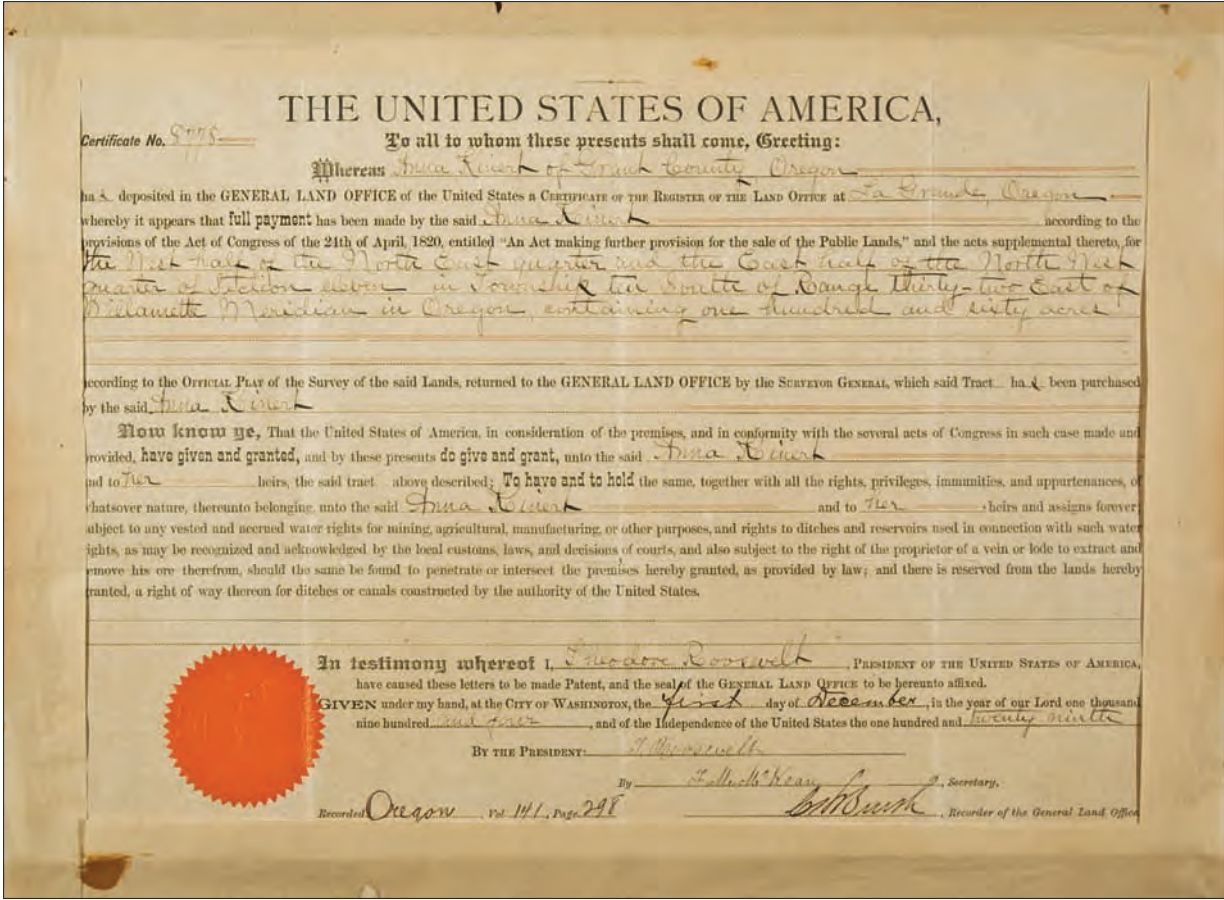 THE UNITED STATES OF AMERICA,
Certificate No. 8778
To all to whom these presents shall come, Greeting:
Whereas Anna Kinert of Grant County, Oregon
ha s deposited in the GENERAL LAND OFFICE of the United States a CERTIFICATE OF THE REGISTER OF THE LAND OFFICE at La Grande, Oregon
whereby it appears that full payment has been made by the said Anna Kinert according to the
provisions of the Act of Congress of the 24th of April, 1820, entitled "An Act making further provision for the sale of the Public Lands," and the acts supplemental thereto, for
the West half of the North East quarter and the East half of the North West
quarter of Section eleven in Township ten South of Range thirty-two East of
Willamette Meridian in Oregon, containing one hundred and sixty acres
according to the OFFICIAL PLAT of the Survey of the said Lands, returned to the GENERAL LAND OFFICE by the SURVEYOR GENERAL, which said Tract ha s been purchased
by the said Anna Kinert
Now know ye, That the United States of America, in consideration of the premises, and in conformity with the several acts of Congress in such case made and
provided, have given and granted, and by these presents do give and grant, unto the said Anna Kinert
and to her heirs, the said tract above described; To have and to hold the same, together with all the rights, privileges, immunities, and appurtenances, of
whatsoever nature, thereunto belonging, unto the said Anna Kinert and to her heirs and assigns forever;
subject to any vested and accrued water rights for mining, agricultural, manufacturing, or other purposes, and rights to ditches and reservoirs used in connection with such water
rights, as may be recognized and acknowledged by the local customs, laws, and decisions of courts, and also subject to the right of the proprietor of a vein or lode to extract and
remove his ore therefrom, should the same be found to penetrate or intersect the premises hereby granted, as provided by law; and there is reserved from the lands hereby
granted, a right of way thereon for ditches or canals constructed by the authority of the United States.
In testimony whereof I, Theodore Roosevelt, PRESIDENT OF THE UNITED STATES OF AMERICA,
have caused these letters to be made Patent, and the seal of the GENERAL LAND OFFICE to be hereunto affixed.
GIVEN under my hand, at the CITY OF WASHINGTON, the first day of December, in the year of our Lord one thousand
nine hundred and four, and of the Independence of the United States the one hundred and twenty ninth
BY THE PRESIDENT: T. Roosevelt
By F. M. McKean, Secretary,
Recorded Oregon, Vol. 141, Page 298 , Recorder of the General Land Office